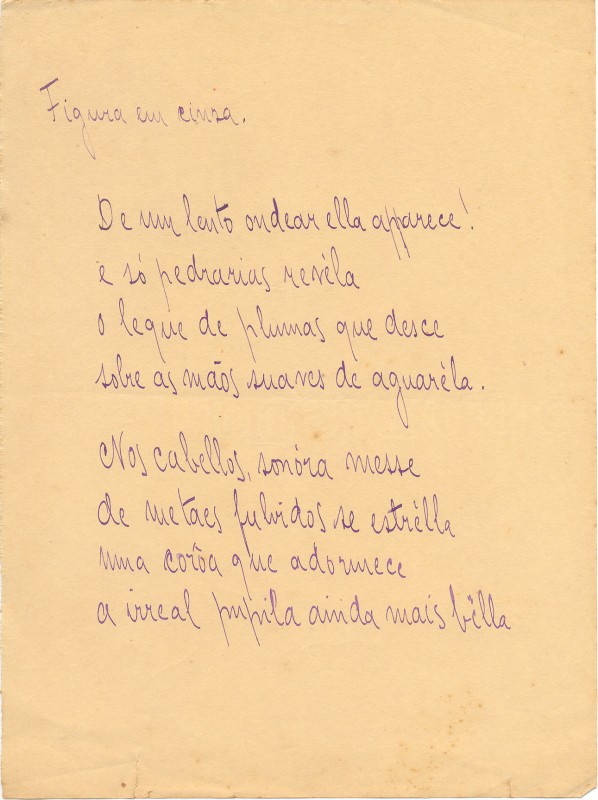 Figura em cinza.
De um lento ondear ella apparece!
e só pedrarias revéla
o leque de plumas que desce
sobre as mãos suaves de aguaréla.
Nos cabellos, sonóra messe
de metaes fulvidos se estrélla
uma corôa que adormece
a irreal pupila ainda mais bélla